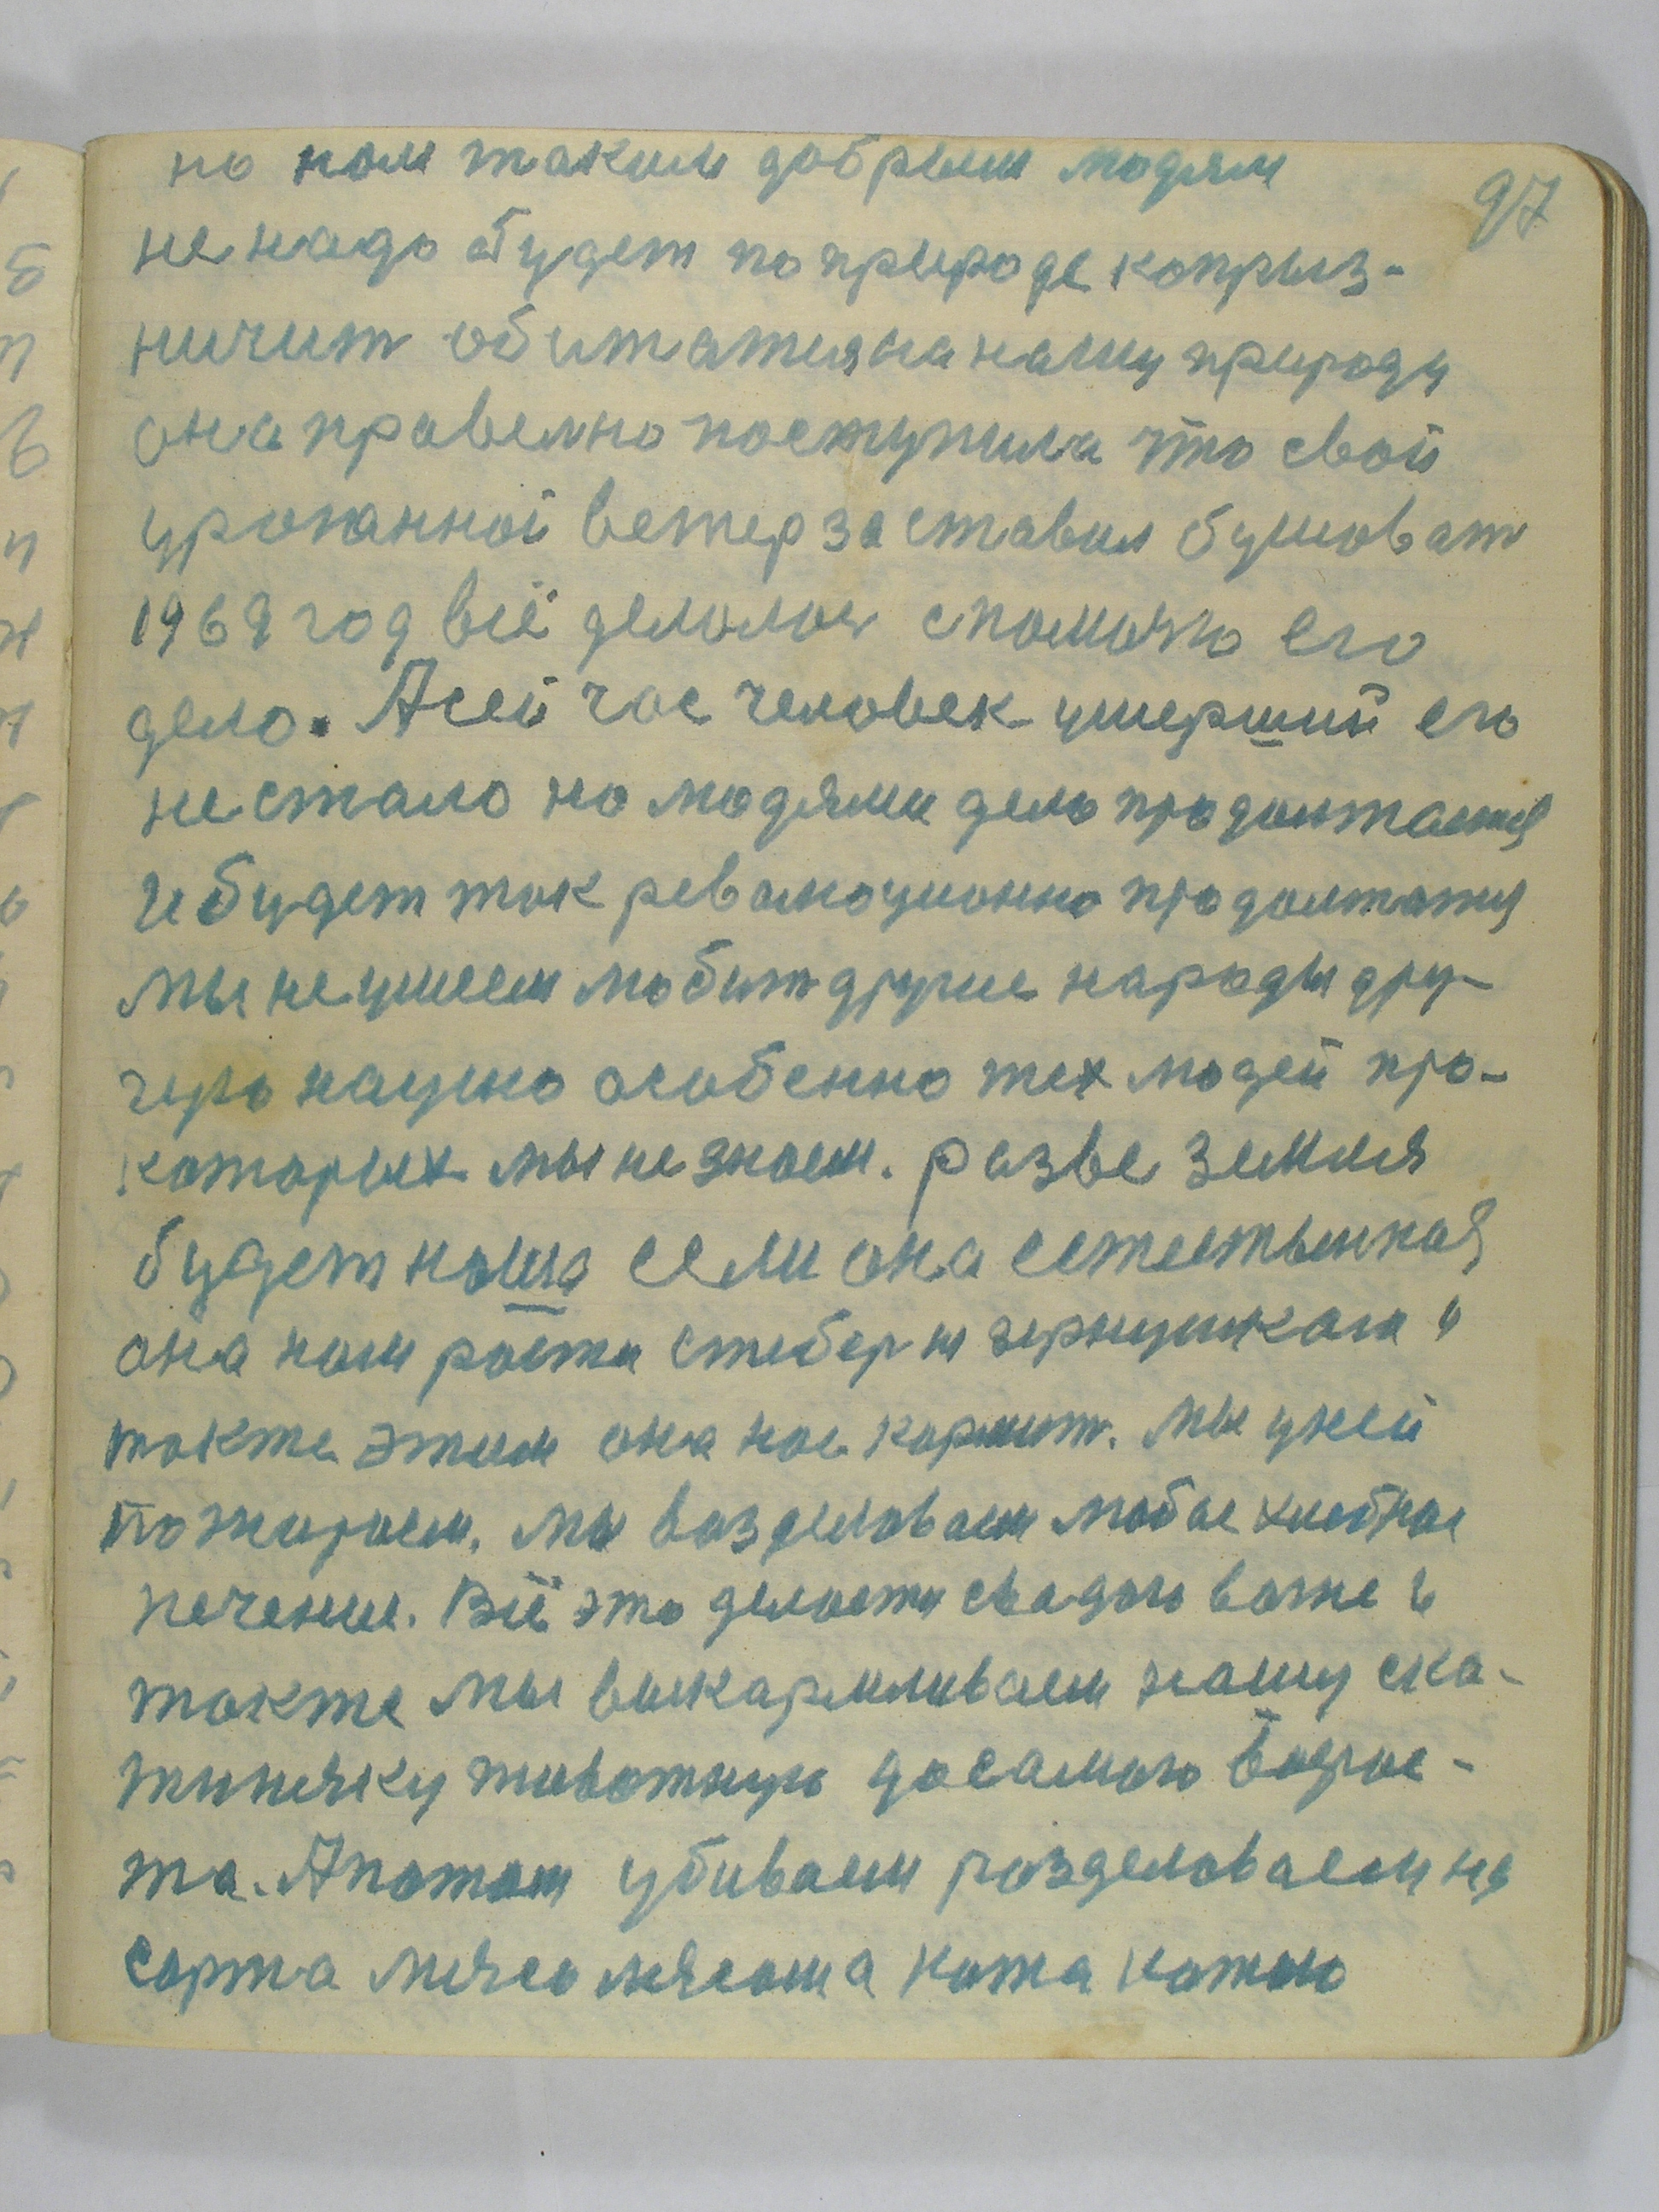 97
но нам таким добрым людям
не надо будет по природе каприз-
ничит обитатися на нашу природу
она правелно поступила что свой
ураганной ветер заставил бушоват
1969 год всё делолос спомочю его
дело. А сей час человек умерший его
не стало но людями дело продолжается
и будет так революционно продолжатся
мы не умеем любит другие народы дру-
гую нацию особенно тех людей про-
которых мы не знаем. разве земля
будет наша если она естественная
она нам расти с зернушкам и
также этим она нас кормит. Мы у ней
пожираем. мы возделоваем любое хлебное
печение. Всё это делается сводою воже и
также мы выкармливаем нашу ска-
тинячку животную до самого возрос-
та. А потом убиваем разделоваем на
сорта мясо мясом а кожа кожою